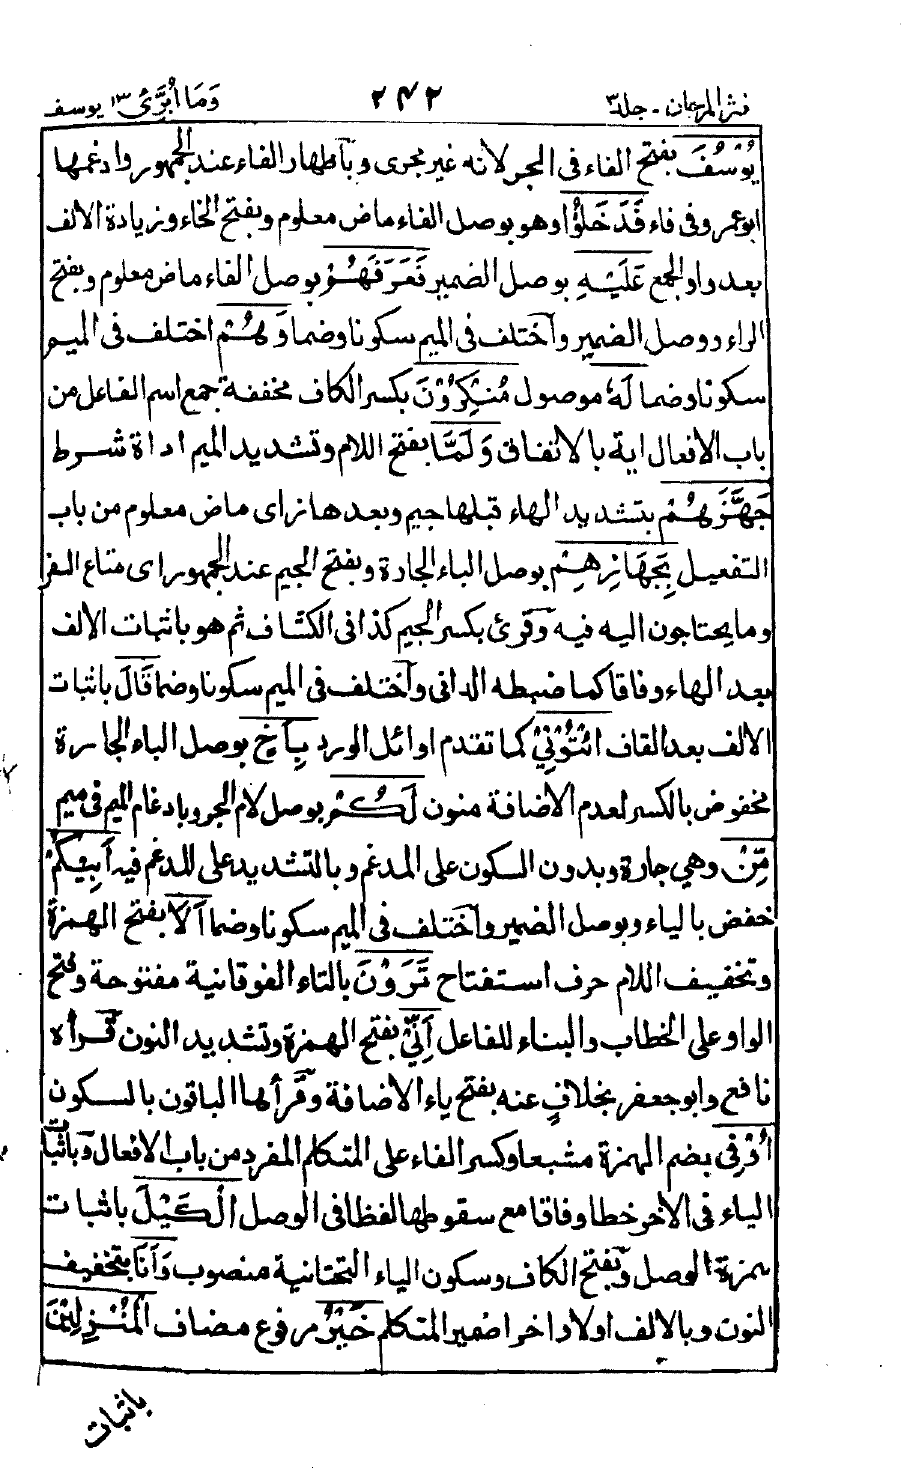 نثر المرجان - جلد٣ ٢٤٢ وَمَا أُبَرِّئُ ١٣ يوسف
يُوْسُفَ بفتح الفاء فى الجر لانه غير مجرى وباظهار الفاء عند الجمهور وادغمها
ابو عمرو فى فاء فَدَخَلُوْا وهو بوصل الفاء ماض معلوم وبفتح الخاء وزيادة الالف
بعد واو الجمع عَلَيْهِ بوصل الضمير فَعَرَفَهُمْ بوصل الفاء ماض معلوم وبفتح
الراء ووصل الضمير واختلف فى الميم سكونا وضما وَهُمْ اختلف فى الميم
سكونا وضما لَهٗ موصول مُنْكِرُوْنَ بكسر الكاف مخففة جمع اسم الفاعل من
باب الافعال اية بالاتفاق وَلَمَّا بفتح اللام وتشديد الميم اداة شرط
جَهَّزَهُمْ بتشديد الهاء قبلها جيم وبعدها زاى ماض معلوم من باب
التفعيل بِجَهَازِهِمْ بوصل الباء الجارة وبفتح الجيم عند الجمهور اى متاع السفر
وما يحتاجون اليه فيه وقرئ بكسر الجيم كذا فى الكشاف ثم هو باثبات الالف
بعد الهاء وفاقا كما ضبطه الدانى واختلف فى الميم سكونا وضما قَالَ باثبات
الالف بعد القاف ائْتُوْنِيْ كما تقدم اوائل الورد بِأَخٍ بوصل الباء الجارة
مخفوض بالكسر لعدم الاضافة منون لَكُمْ بوصل لام الجر وبادغام الميم فى ميم
مِّنْ وهي جارة وبدون السكون على المدغم وبالتشديد على المدغم فيه اَبِيْكُمْ
خفض بالياء وبوصل الضمير واختلف فى الميم سكونا وضما اَلَا بفتح الهمزة
وتخفيف اللام حرف استفتاح تَرَوْنَ بالتاء الفوقانية مفتوحة وفتح
الواو على الخطاب والبناء للفاعل اَنِّيْ بفتح الهمزة وتشديد النون قرأه
نافع وابو جعفر بخلاف عنه بفتح ياء الاضافة وقرأها الباقون بالسكون
اُوْفِى بضم الهمزة مشبعا وكسر الفاء على المتكلم المفرد من باب الافعال وباثبات
الياء فى الاخر خطا وفاقا مع سقوطها لفظا فى الوصل الْكَيْلَ باثبات
همزة الوصل وبفتح الكاف وسكون الياء التحتانية منصوب وَأَنَا بتخفيف
النون وبالالف اولا واخرا ضمير المتكلم خَيْرُ مرفوع مضاف الْمُنْزِلِيْنَ
باثبات